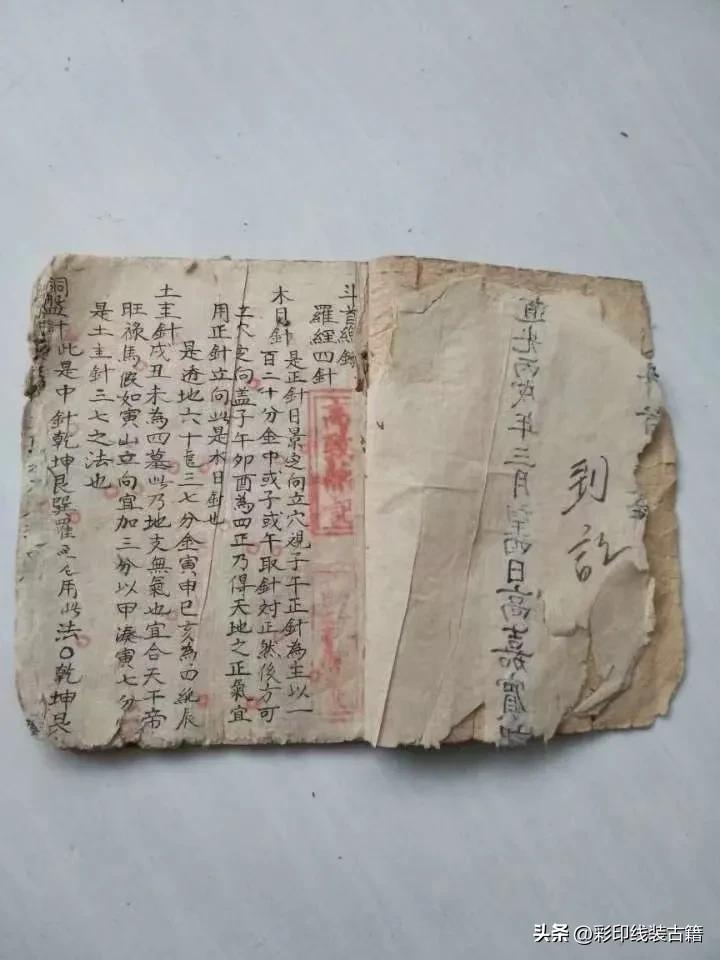 道光丙戌年三月
日高
到訖
斗首
羅經四針
木日針
是正針日景之向立穴視子午正針為主以一
百二十分金中或子或午取針对正然後方可
立穴之向盖子午卯酉為四正乃得天地之正氣宜
用正針立向此是木日針也
土主針
是透地六十七分金寅申巳亥為四
戌丑未為四墓此乃地支無氣也宜合天干帝
旺祿馬假如寅山立向宜加三分以甲湊寅七分
是土主針三七之法也
此是中針乾坤艮巽羅用此法〇乾坤艮
头条 @彩印线装古籍